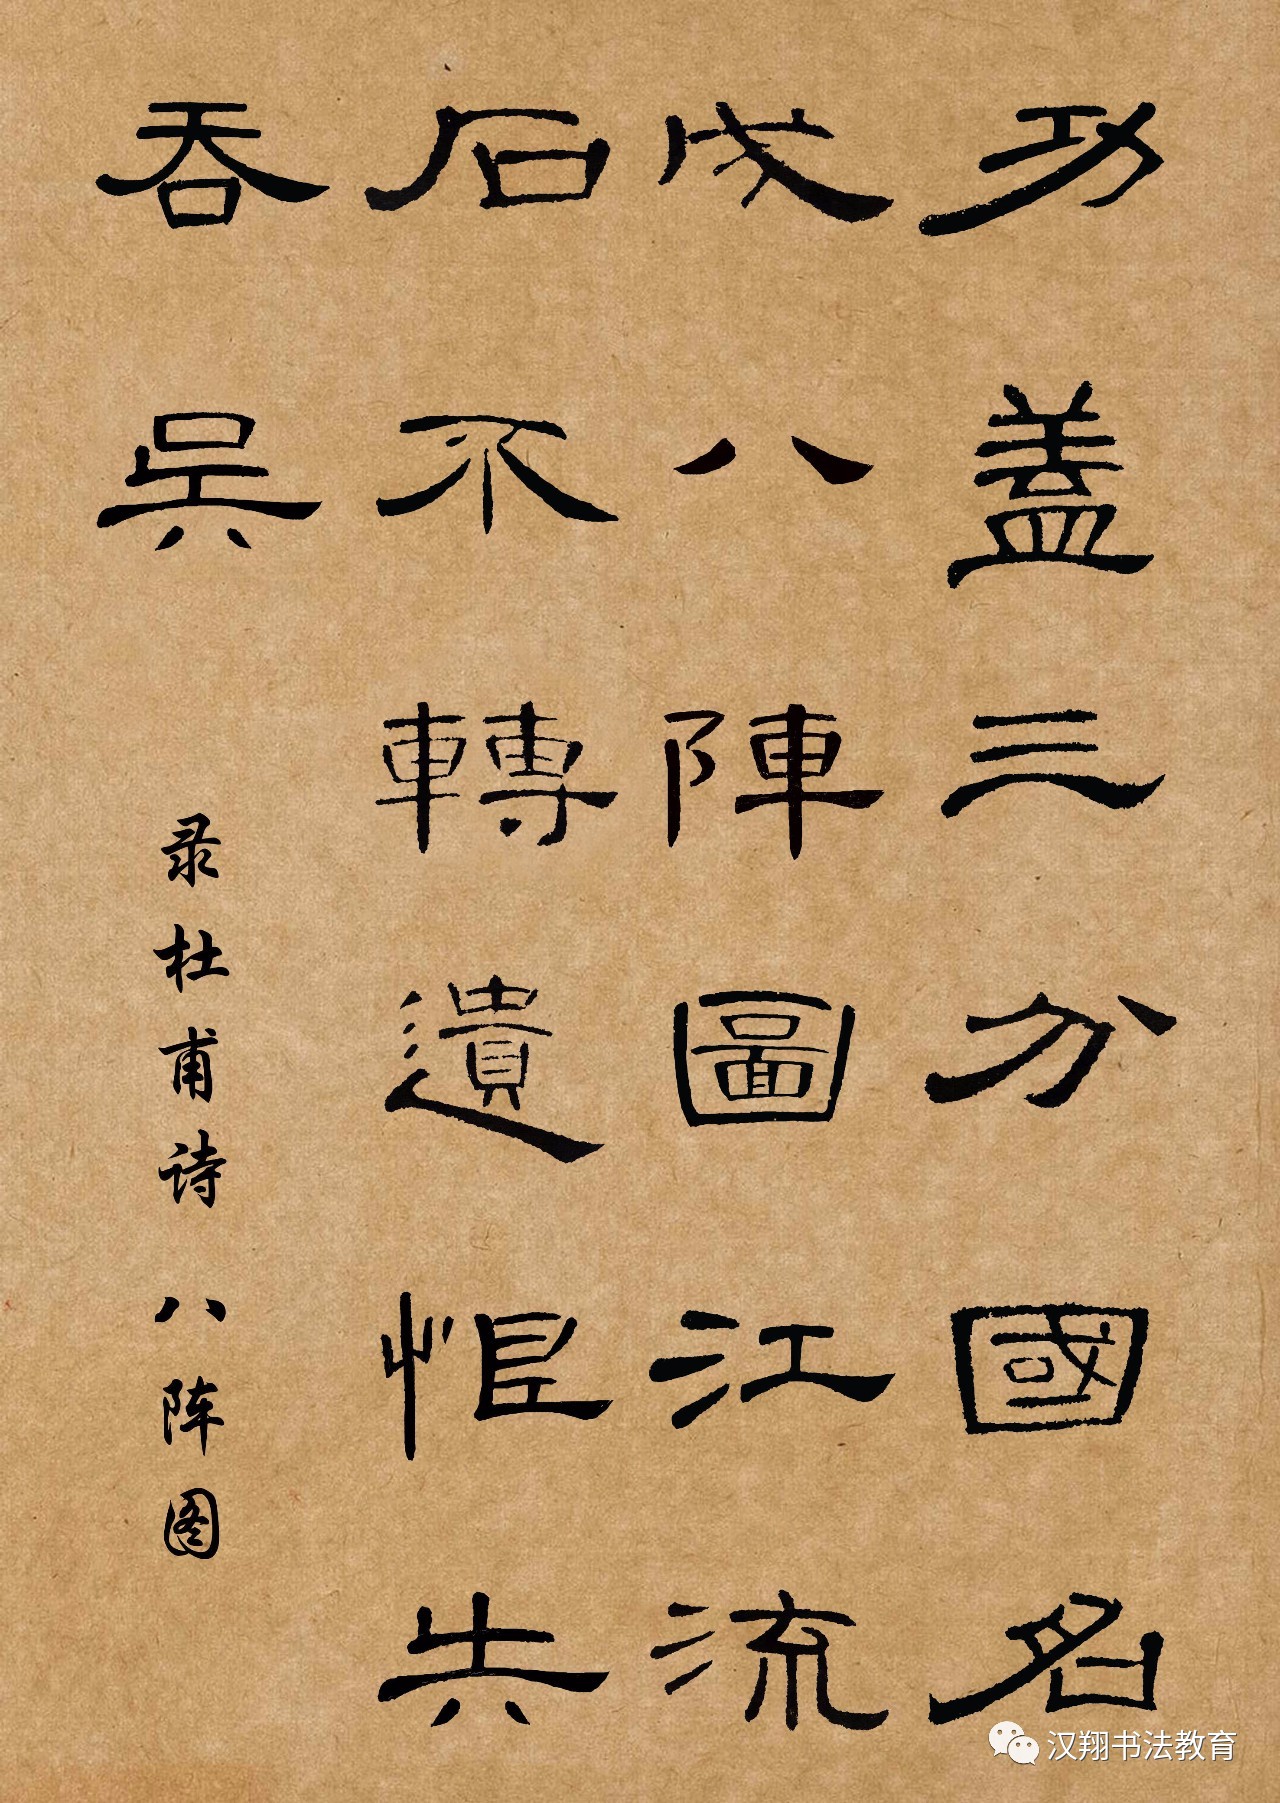 功盖三分國名
成八陣圖江流
石不轉遺恨失
吞吳
录杜甫诗 八阵图
汉翔书法教育